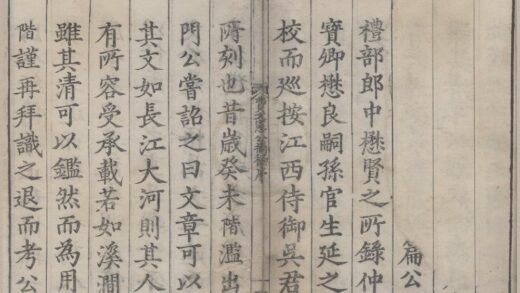 扁公
禮部郎中懋賢之所錄仲
寳卿懋良嗣孫官生延之
校而巡按江西侍御吳君
所刻也昔歲癸未階濫出
門公嘗詔之曰文章可以
其文如長江大河則其人
有所容受承載若如溪澗
雖其清可以鑑然而為用
階謹再拜識之退而考公